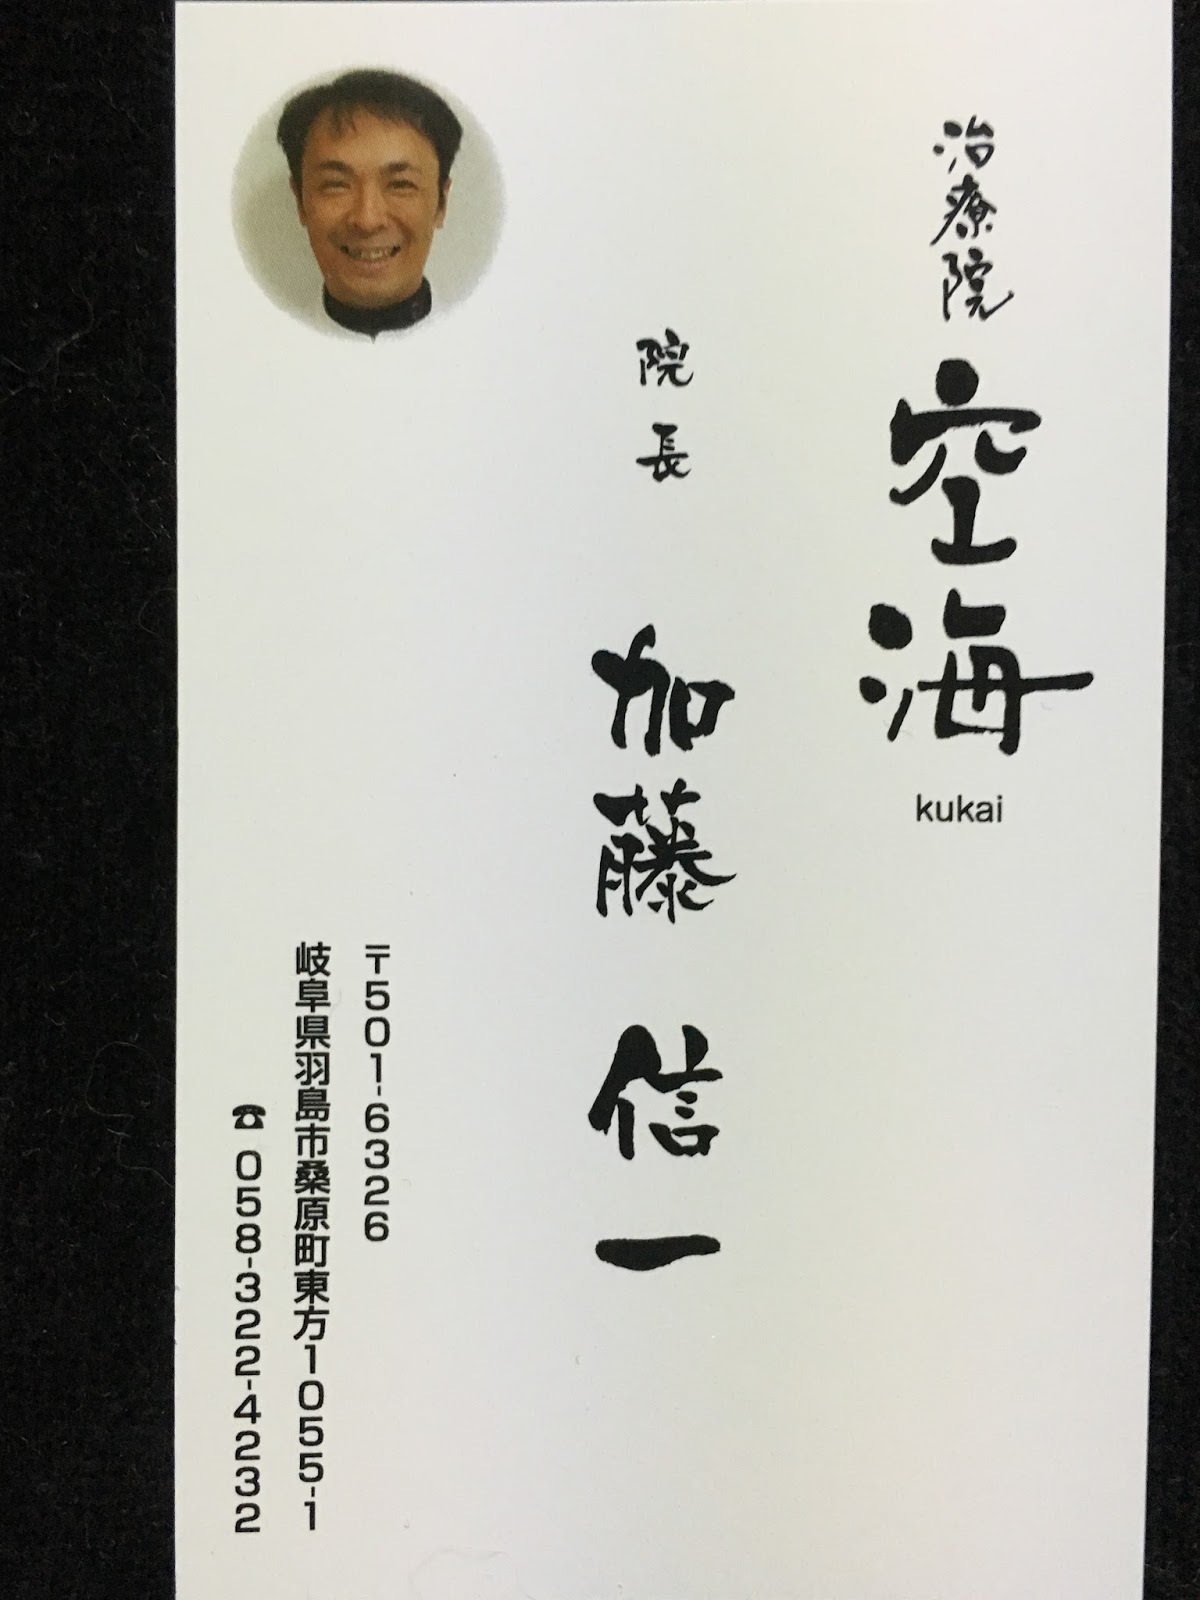 治療院 空海 kukai
院長 加藤 信一
〒501-6326
岐阜県羽島市桑原町東方1055-1
☎ 058-322-4232